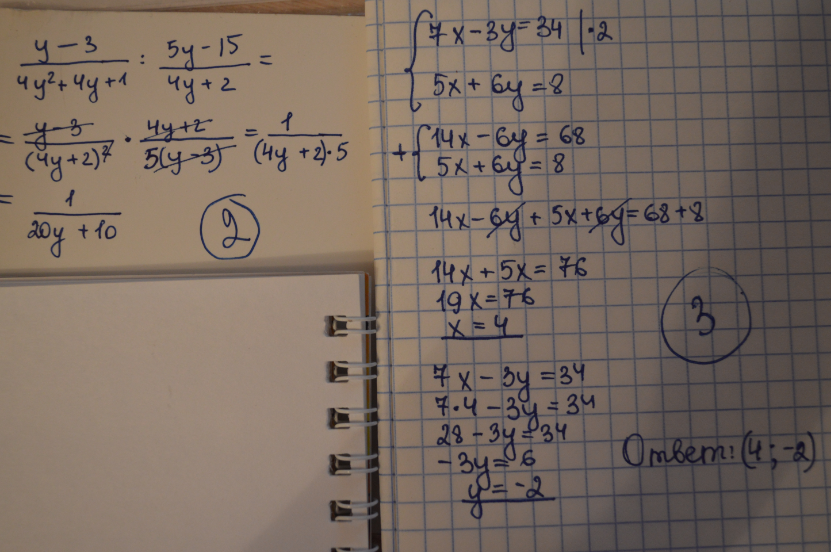 y − 3 / 4y² + 4y + 1 : 5y − 15 / 4y + 2 =
= y − 3 / (4y + 2)² · 4y + 2 / 5(y − 3) = 1 / (4y + 2)·5
= 1 / 20y + 10
2
7x − 3y = 34 | ·2
5x + 6y = 8
+ { 14x − 6y = 68
5x + 6y = 8
14x − 6y + 5x + 6y = 68 + 8
14x + 5x = 76
19x = 76
x = 4
3
7x − 3y = 34
7·4 − 3y = 34
28 − 3y = 34
−3y = 6
y = −2
Ответ: (4; −2)